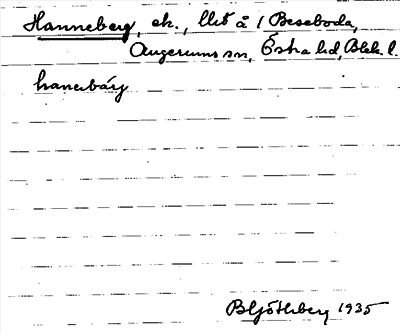 Hanneberg, ek., llt å 1 Beseboda,
Augerums sn, Östra hd, Blek. l.
hanabärj
B Hjöthberg 1935